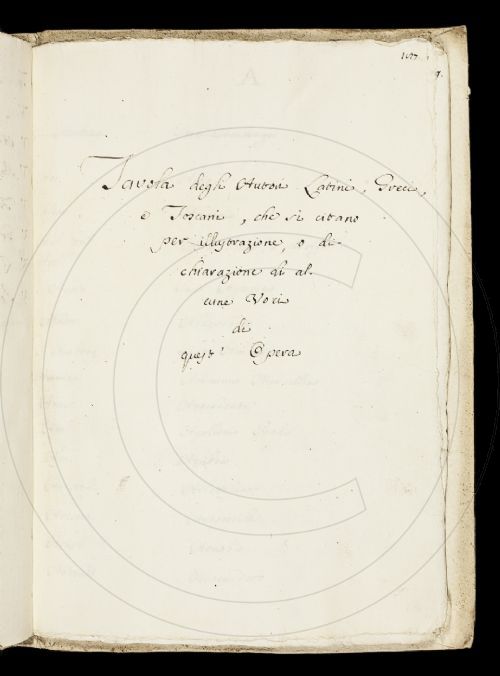 107
Tavola degli Autori Latini, Greci,
e Toscani, che si citano
per illustrazione, o di-
chiarazione di al-
cune Voci
di
quest' Opera